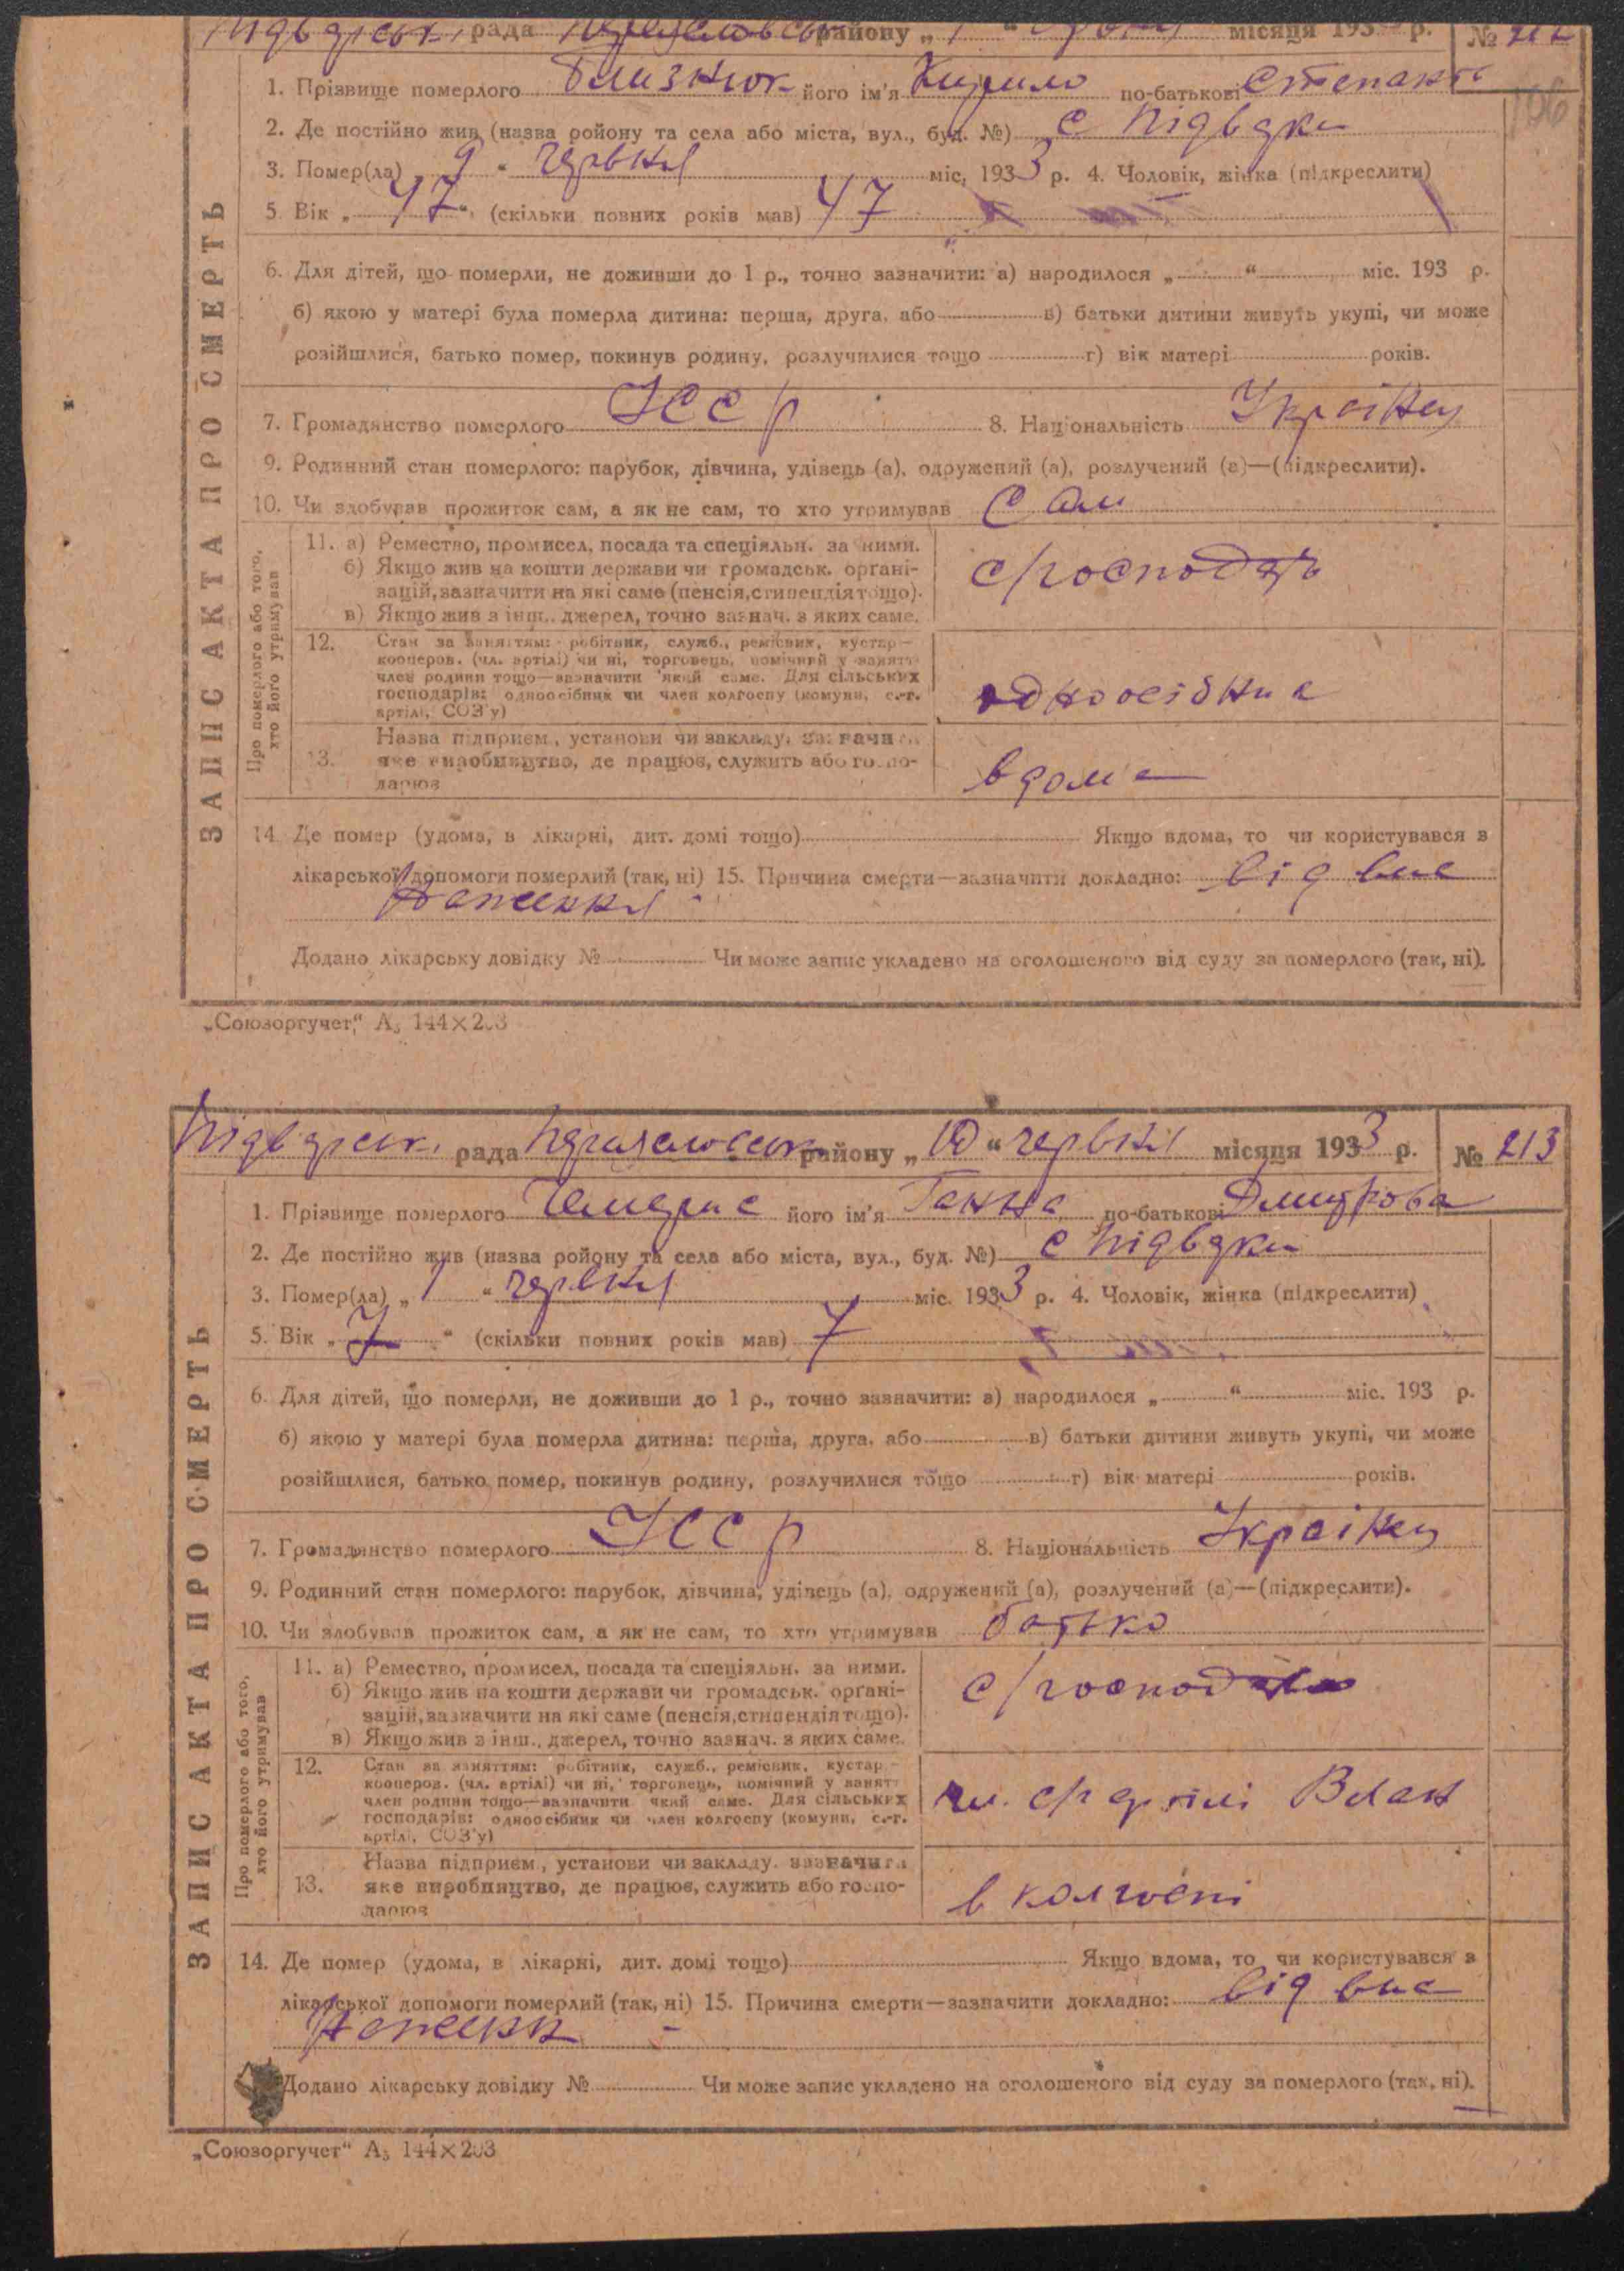 рада району „ “ місяця 193 р. № 212
106
1. Прізвище померлого Близнюк його ім'я Кирило по-батькові Степано
2. Де постійно жив (назва ройону та села або міста, вул., буд. №) с Підвдки
3. Помер(ла) „ 9 “ червня міс, 1933 р. 4. Чоловік, жінка (підкреслити)
5 Вік „ 47 “ (скільки повних років мав) 47
6. Для дітей, що померли, не доживши до 1 р., точно зазначити: а) народилося „ “ міс. 193 р.
б) якою у матері була померла дитина: перша, друга, або в) батьки дитини живуть укупі, чи може
розійшлися, батько помер, покинув родину, розлучилися тощо г) вік матері років.
7. Громадянство померлого УССР 8. Національність Українец
9. Родинний стан померлого: парубок, дівчина, удівець (а), одружений (а), розлучений (а)—(підкреслити).
10. Чи здобував прожиток сам, а як не сам, то хто утримував Сам
ЗАПИС АКТА ПРО СМЕРТЬ
Про померлого або того, хто його утримував
11. а) Ремество, промисел, посада та спеціяльн. за ними.
б) Якщо жив на кошти держави чи громадськ. органі-
зацій, зазначити на які саме (пенсія, стипендія тощо).
в) Якщо жив з інш., джерел, точно зазнач. з яких саме.
с/господарь
12. Стан за заняттям: робітник, служб., ремісник, кустар—
кооперов. (чл. артілі) чи ні, торговець, помічний у занятт
член родини тощо—вазначити який саме. Для сільських
господарів: одноосібник чи член колгоспу (комуни, с.-г.
артілі, СОЗ'у)
одноосібник
13. Назва підприєм., установи чи закладу, зазначити
яке виробництво, де працює, служить або госпо-
дарює
вдома
14. Де помер (удома, в лікарні, дит. домі тощо) Якщо вдома, то чи користувався в
лікарської допомоги померлий (так, ні) 15. Причина смерти—зазначити докладно: від вис
наження
Додано лікарську довідку № Чи може запис укладено на оголошеного від суду за померлого (так, ні).
„Союзоргучет“ А₅ 144×203
рада району „ 10 “ червня місяця 1933 р. № 213
1. Прізвище померлого Чемерис його ім'я Ганна по-батькові Дмитрова
2. Де постійно жив (назва ройону та села або міста, вул., буд. №) с Підвдки
3. Помер(ла) „ 1 “ червня міс. 1933 р. 4. Чоловік, жінка (підкреслити)
5. Вік „ 7 “ (скільки повних років мав) 7
6. Для дітей, що померли, не доживши до 1 р., точно зазначити: а) народилося „ “ міс. 193 р.
б) якою у матері була померла дитина: перша, друга, або в) батьки дитини живуть укупі, чи може
розійшлися, батько помер, покинув родину, розлучилися тощо г) вік матері років.
7. Громадянство померлого УССР 8. Національність Українец
9. Родинний стан померлого: парубок, дівчина, удівець (а), одружений (а), розлучений (а)—(підкреслити).
10. Чи здобував прожиток сам, а як не сам, то хто утримував батько
ЗАПИС АКТА ПРО СМЕРТЬ
Про померлого або того, хто його утримував
11. а) Ремество, промисел, посада та спеціяльн. за ними.
б) Якщо жив на кошти держави чи громадськ. органі-
зацій, зазначити на які саме (пенсія, стипендія тощо).
в) Якщо жив з інш., джерел, точно зазнач. з яких саме.
12. Стан за заняттям: робітник, служб., ремісник, кустар—
кооперов. (чл. артілі) чи ні, торговець, помічний у занятт
член родини тощо—вазначити який саме. Для сільських
господарів: одноосібник чи член колгоспу (комуни, с.-г.
артілі, СОЗ'у)
чл. с/г артілі
13. Назва підприєм., установи чи закладу, зазначити
яке виробництво, де працює, служить або госпо-
дарює
в колгоспі
14. Де помер (удома, в лікарні, дит. домі тощо) Якщо вдома, то чи користувався в
лікарської допомоги померлий (так, ні) 15. Причина смерти—зазначити докладно: від вис
наженн
Додано лікарську довідку № Чи може запис укладено на оголошеного від суду за померлого (так, ні).
„Союзоргучет“ А₅ 144×203